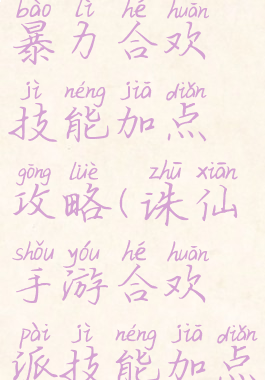 bào lì hé huān
暴力合欢
jì néng jiā diǎn
技能加点
gōng lüè zhū xiān
攻略(诛仙
shǒu yóu hé huān
手游合欢
pài jì néng jiā diǎn
派技能加点